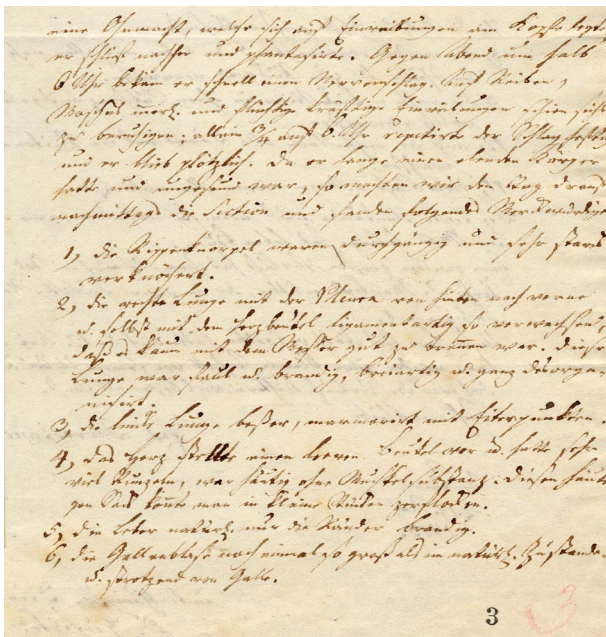 eine Ohnmacht, welche sich auf Einreibungen am Kopfe legte,
er schlief nachher und phantasirte. Gegen abend um halb
6 Uhr bekam er schnell einen Nervenschlag. Auf Reiben,
Moschus und flüchtige kräftige Einreibungen schien sich
zu beruhigen; allein 3/4 auf 6 Uhr repetirte der Schlag
und er blieb plötzlich. Da er lange einen elenden Körper
hatte und ungesund war, so machten wir den Tag drauf
nachmittags die Section und fanden folgendes Merkwürdige
1, die Rippenknorpel waren durchgängig und sehr stark
verknöchert.
2, die rechte Lunge mit der Pleura von hinten nach vorne
u. selbst mit dem Herzbeutel ligamentartig so verwachsen,
daß es kaum mit dem Messer gut zu trennen war. Diese
Lunge war faul u. brandig, breiartig u. ganz desorga-
nisirt.
3, die linke Lunge beßer, marmorirt mit Eiterpunkten.
4, das Herz stellte einen leeren Beutel vor u. hatte sehr
viel Runzeln, war häutig ohne Muskelsubstanz. Diesen häuti-
gen Sack konnte man in kleine Stücke
5, die Leber natürl. nur die Ränder brandig.
6, die Gallenblase noch einmal so groß als im natürl. Zustande
u. strotzend von Galle.
3
3